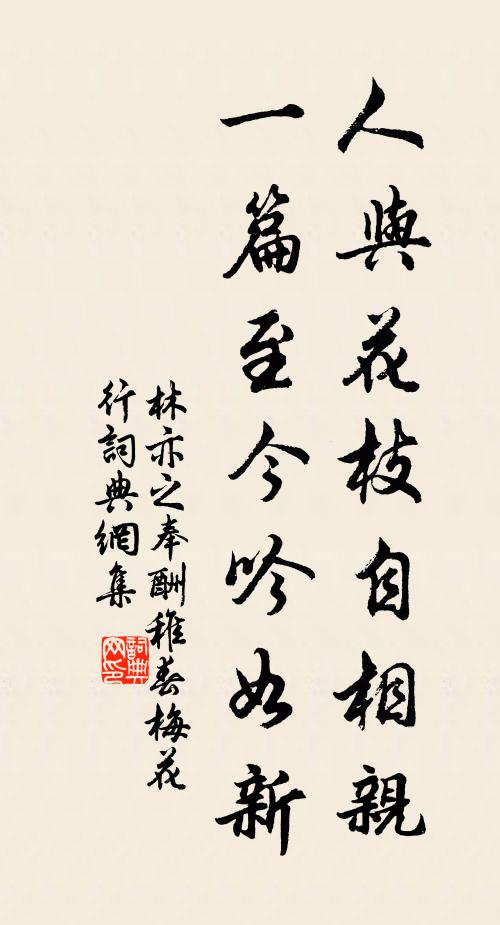 人與花枝自相親
一篇至今吟如新
林亦之奉酬稚春梅花
行詞典網集
詞典
网印